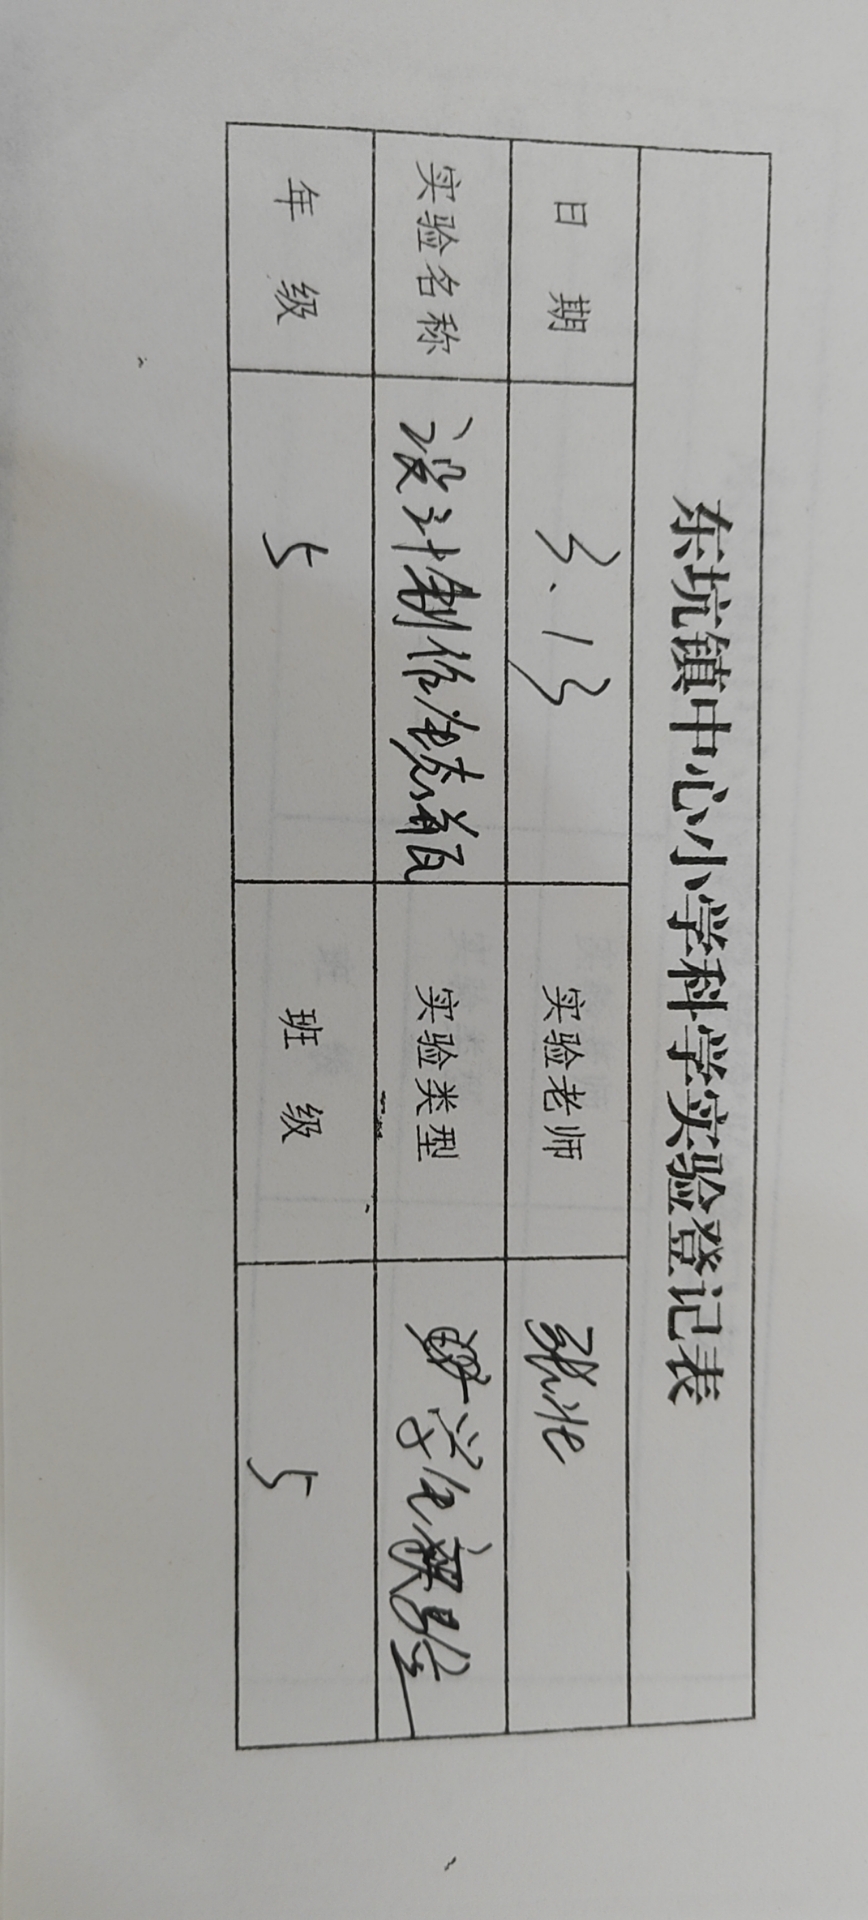 东坑镇中心小学科学实验登记表
日 期 3.13 实验老师
实验名称 设计制作生态瓶 实验类型 学生实验
年 级 5 班 级 5